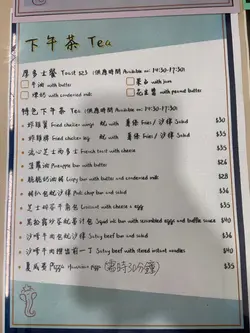 下午茶 Tea
厚多士餐 Toast $23 (供應時間 Available on: 14:30-17:30)
牛油 with butter
果占 with jam
煉奶 with condensed milk
花生醬 with peanut butter
特色下午茶 Tea (供應時間 Available on: 14:30-17:30)
炸雞翼 Fried chicken wings 配 with 薯條 Fries / 沙律 Salad $35
炸雞髀 Fried chicken leg 配 with 薯條 Fries / 沙律 Salad $35
流心芝士西多士 French toast with cheese $35
菠蘿油 Pineapple bar with butter
脆脆奶油豬 Crispy bar with butter and condensed milk $28
豬扒包配沙律 Pork chop bar and salad $36
芝士 with cheese & eggs $35
with scrambled eggs and truffle sauce $40
沙嗲牛肉 Satay beef bar with salad $36
沙嗲牛肉撈出前一丁 Satay beef with stired instant noodles $40
夏威夷 Pizza (需時30分鐘) $35